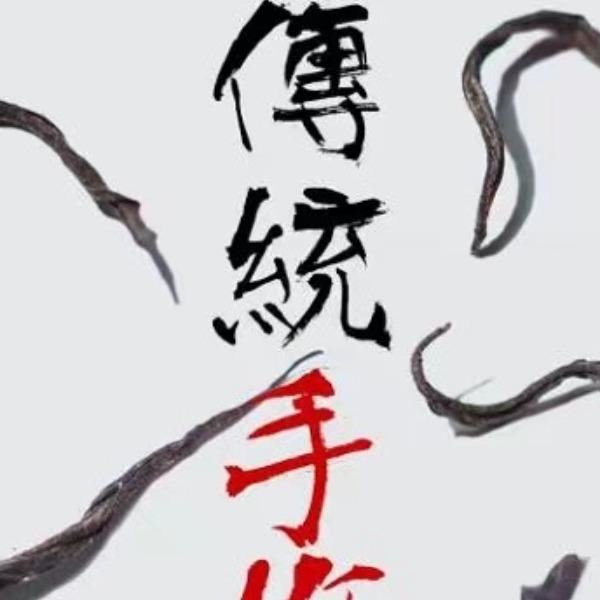 傳統手